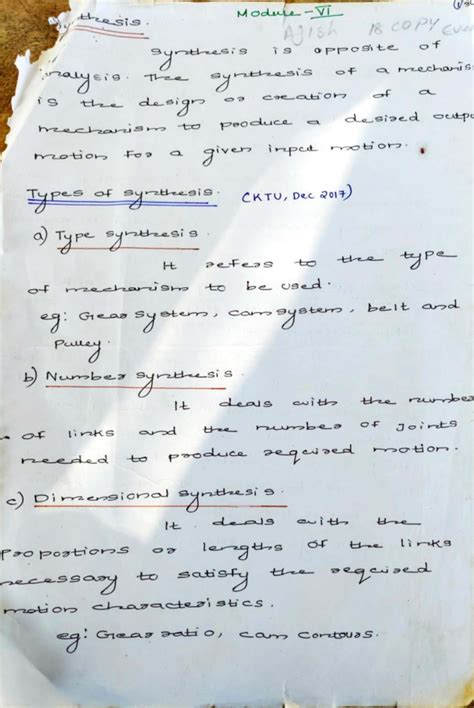 Module - VI
Synthesis.
Ajish 18 COPY
Synthesis is opposite of
analysis. The synthesis of a mechanis
is the design or creation of a
mechanism to produce a desired outp
motion for a given input motion.
Types of synthesis. (KTU, Dec 2017)
a) Type synthesis.
It refers to the type
of mechanism to be used.
eg: Gear system, cam system, belt and
Pulley.
b) Number synthesis.
It deals with the number
of links and the number of joints
needed to produce required motion.
c) Dimensional synthesis.
It deals with the
Proportions or lengths of the links
necessary to satisfy the required
motion characteristics.
eg: Gear ratio, cam contours.